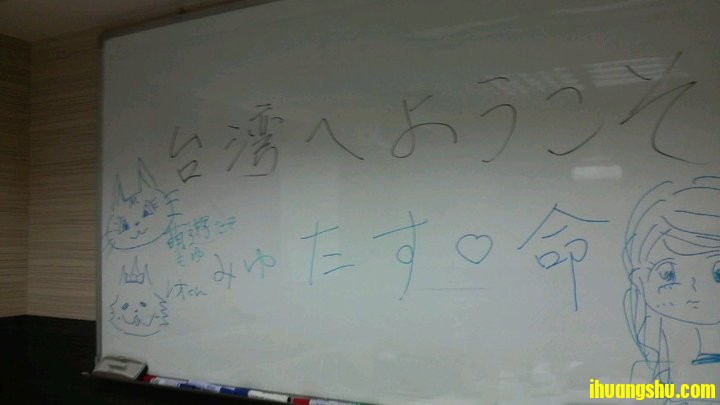 台湾へようこそ
みゆたす♡命
ihuangshu.com